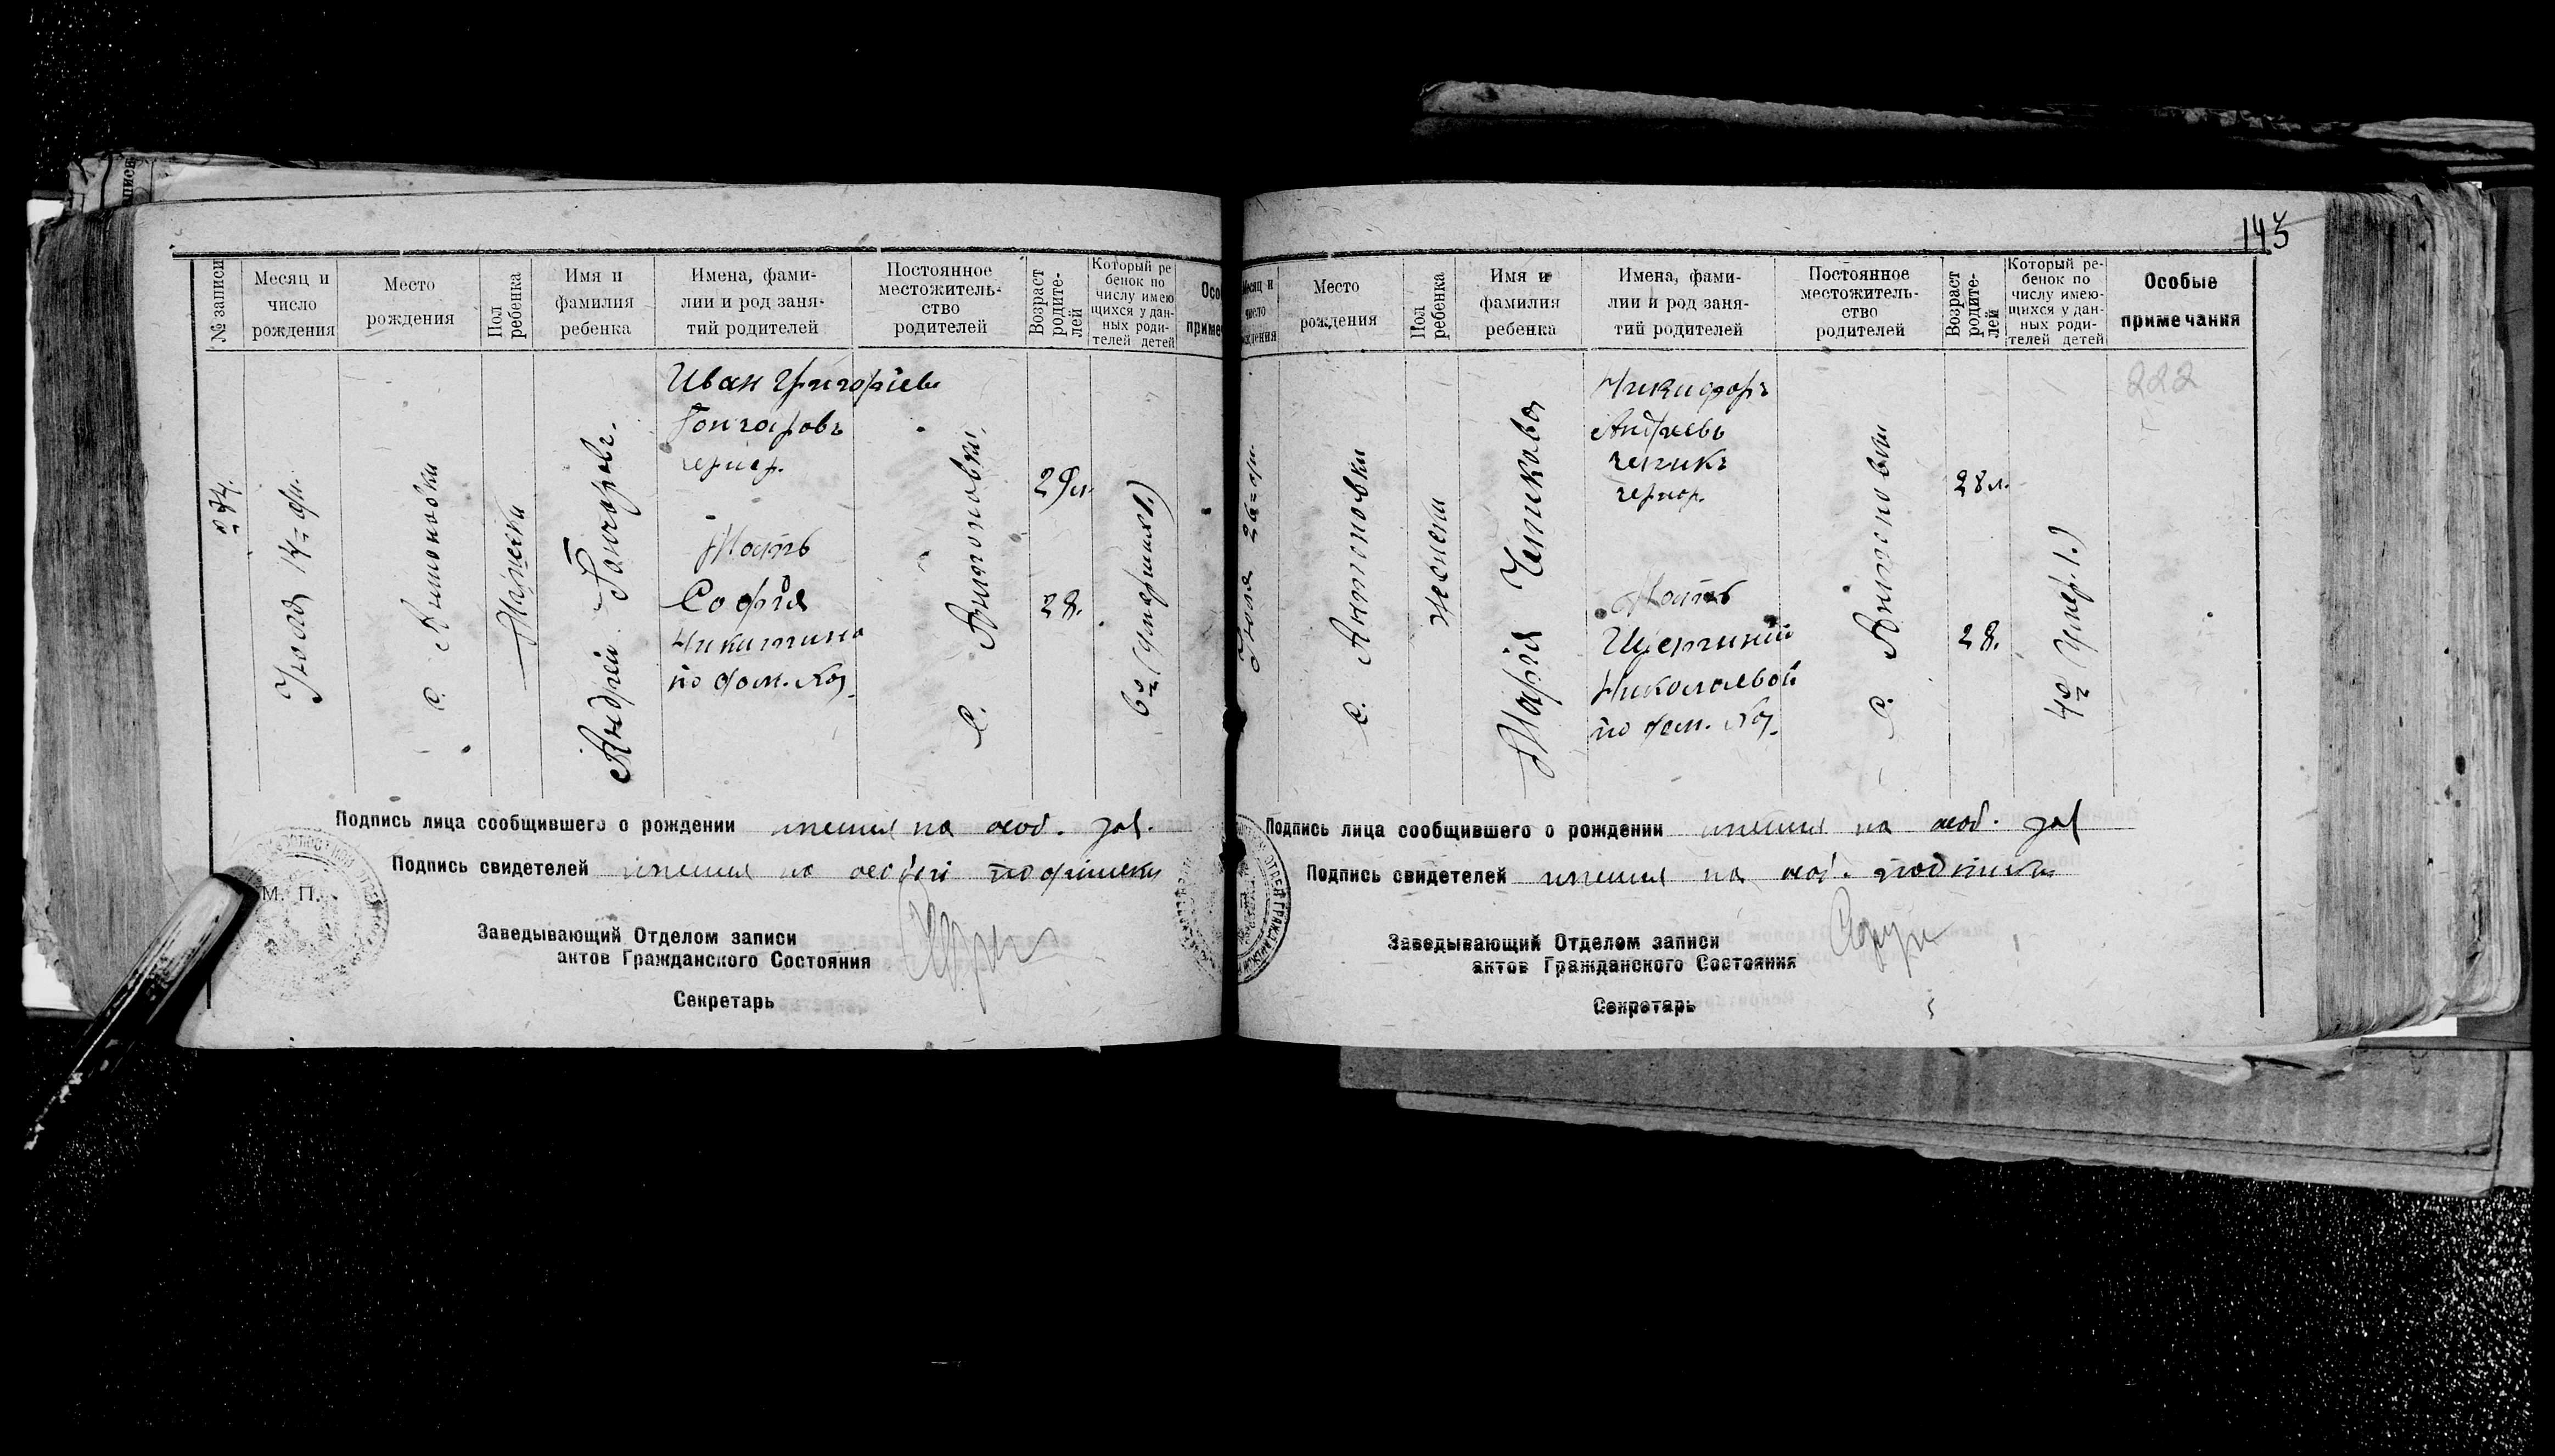 143
№ записи
Месяц и
число
рождения
Место
рождения
Пол
ребенка
Имя и
фамилия
ребенка
Имена, фами-
лии и род заня-
тий родителей
Постоянное
местожитель-
ство
родителей
Возраст
родите-
лей
Который ре
бенок по
числу имею
щихся у дан-
ных роди-
телей детей
Осо
приме
Июля 14
с. Антоновки
Мужески
Андрей Гончаровъ.
Иван Григорiевъ
Гончаровъ
Мать
Софiя
Никитина
по дом. хоз.
с. Антоновки
29 л.
28.
6й (умерших 1.)
Подпись лица сообщившего о рождении имеется на особ.
Подпись свидетелей имеется на особой подписки
М. П.
Заведывающий Отделом записи
актов Гражданского Состояния
Секретарь
Месяц и
число
рождения
Место
рождения
Пол
ребенка
Имя и
фамилия
ребенка
Имена, фами-
лии и род заня-
тий родителей
Постоянное
местожитель-
ство
родителей
Возраст
родите-
лей
Который ре-
бенок по
числу имею-
щихся у дан-
ных роди-
телей детей
Особые
примечания
222
Июля 26
с. Антоновки
женски
Марiя Чепикова
Никифоръ
Андреевъ
чепикъ
Мать
Николаевой
по дом. хоз.
с. Антоновки
28 л.
28.
4й (умер. 1.)
Подпись лица сообщившего о рождении имеется на особ.
Подпись свидетелей имеется на особ. подписки
Заведывающий Отделом записи
актов Гражданского Состояния
Секретарь